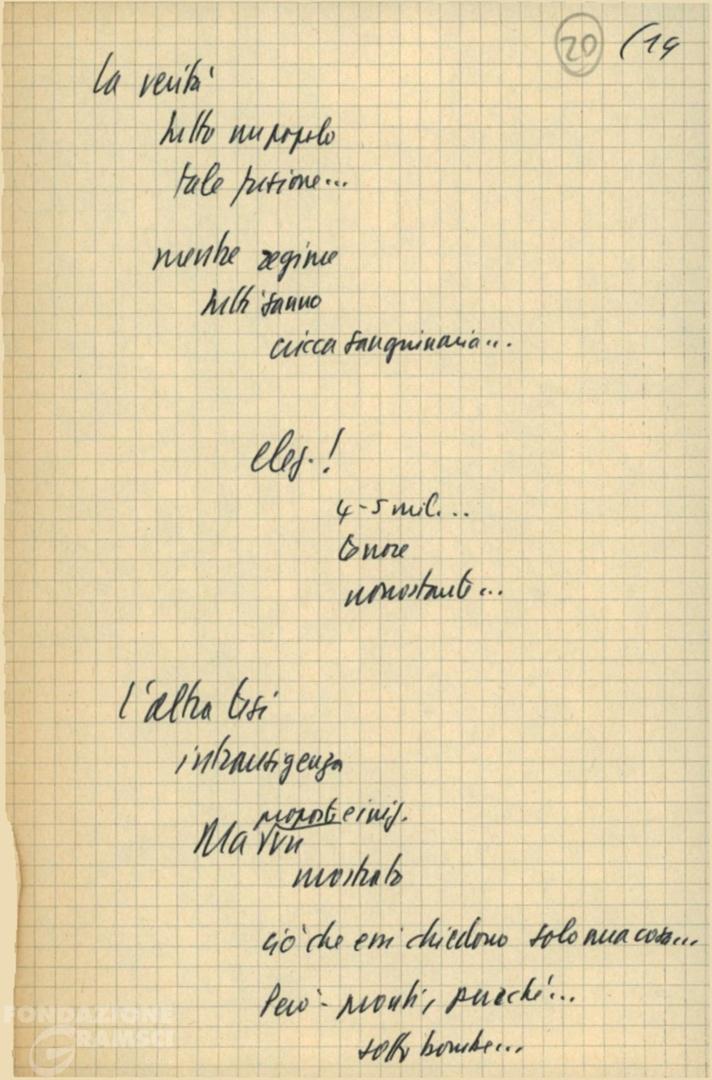 20 (19
La verità
tutto un popolo
tale pressione...
mentre regime
tutti sanno
cricca sanguinaria...
elez.!
4-5 mil...
terrore
nonostante...
l'altra tesi
intransigenza
proposte e iniz.
Ma VVN
mostrato
ciò che essi chiedono solo una cosa...
Però - pronti, purché...
sotto bombe...
FONDAZIONE
GRAMSCI